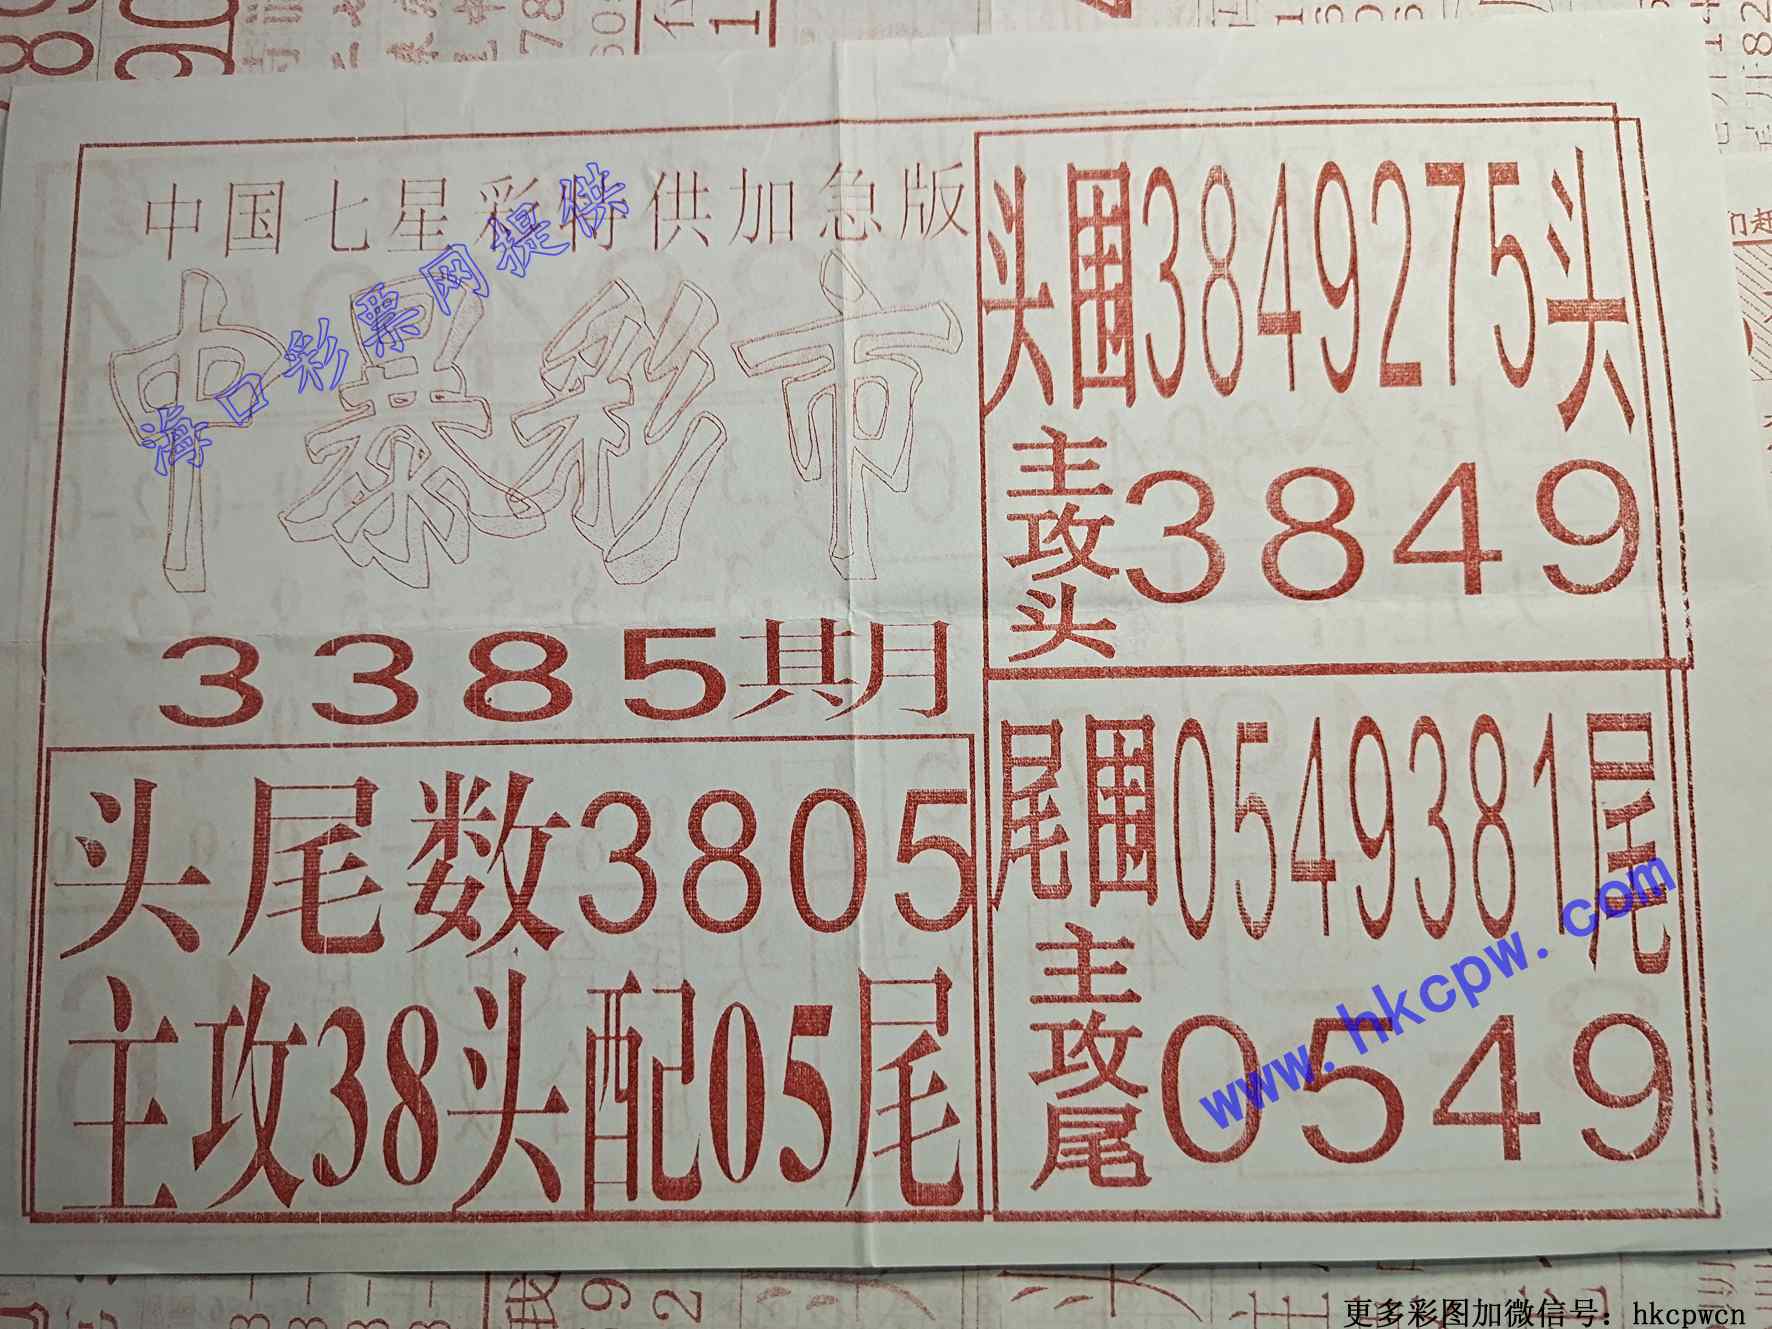 中国七星彩特供加急版
中暴彩市
3385期
头尾数3805
主攻38头配05尾
头围3849275头
主攻头3849
尾围0549381尾
主攻尾0549
海口彩票网提供
www.hkcpw.com
更多彩图加微信号：hkcpwcn